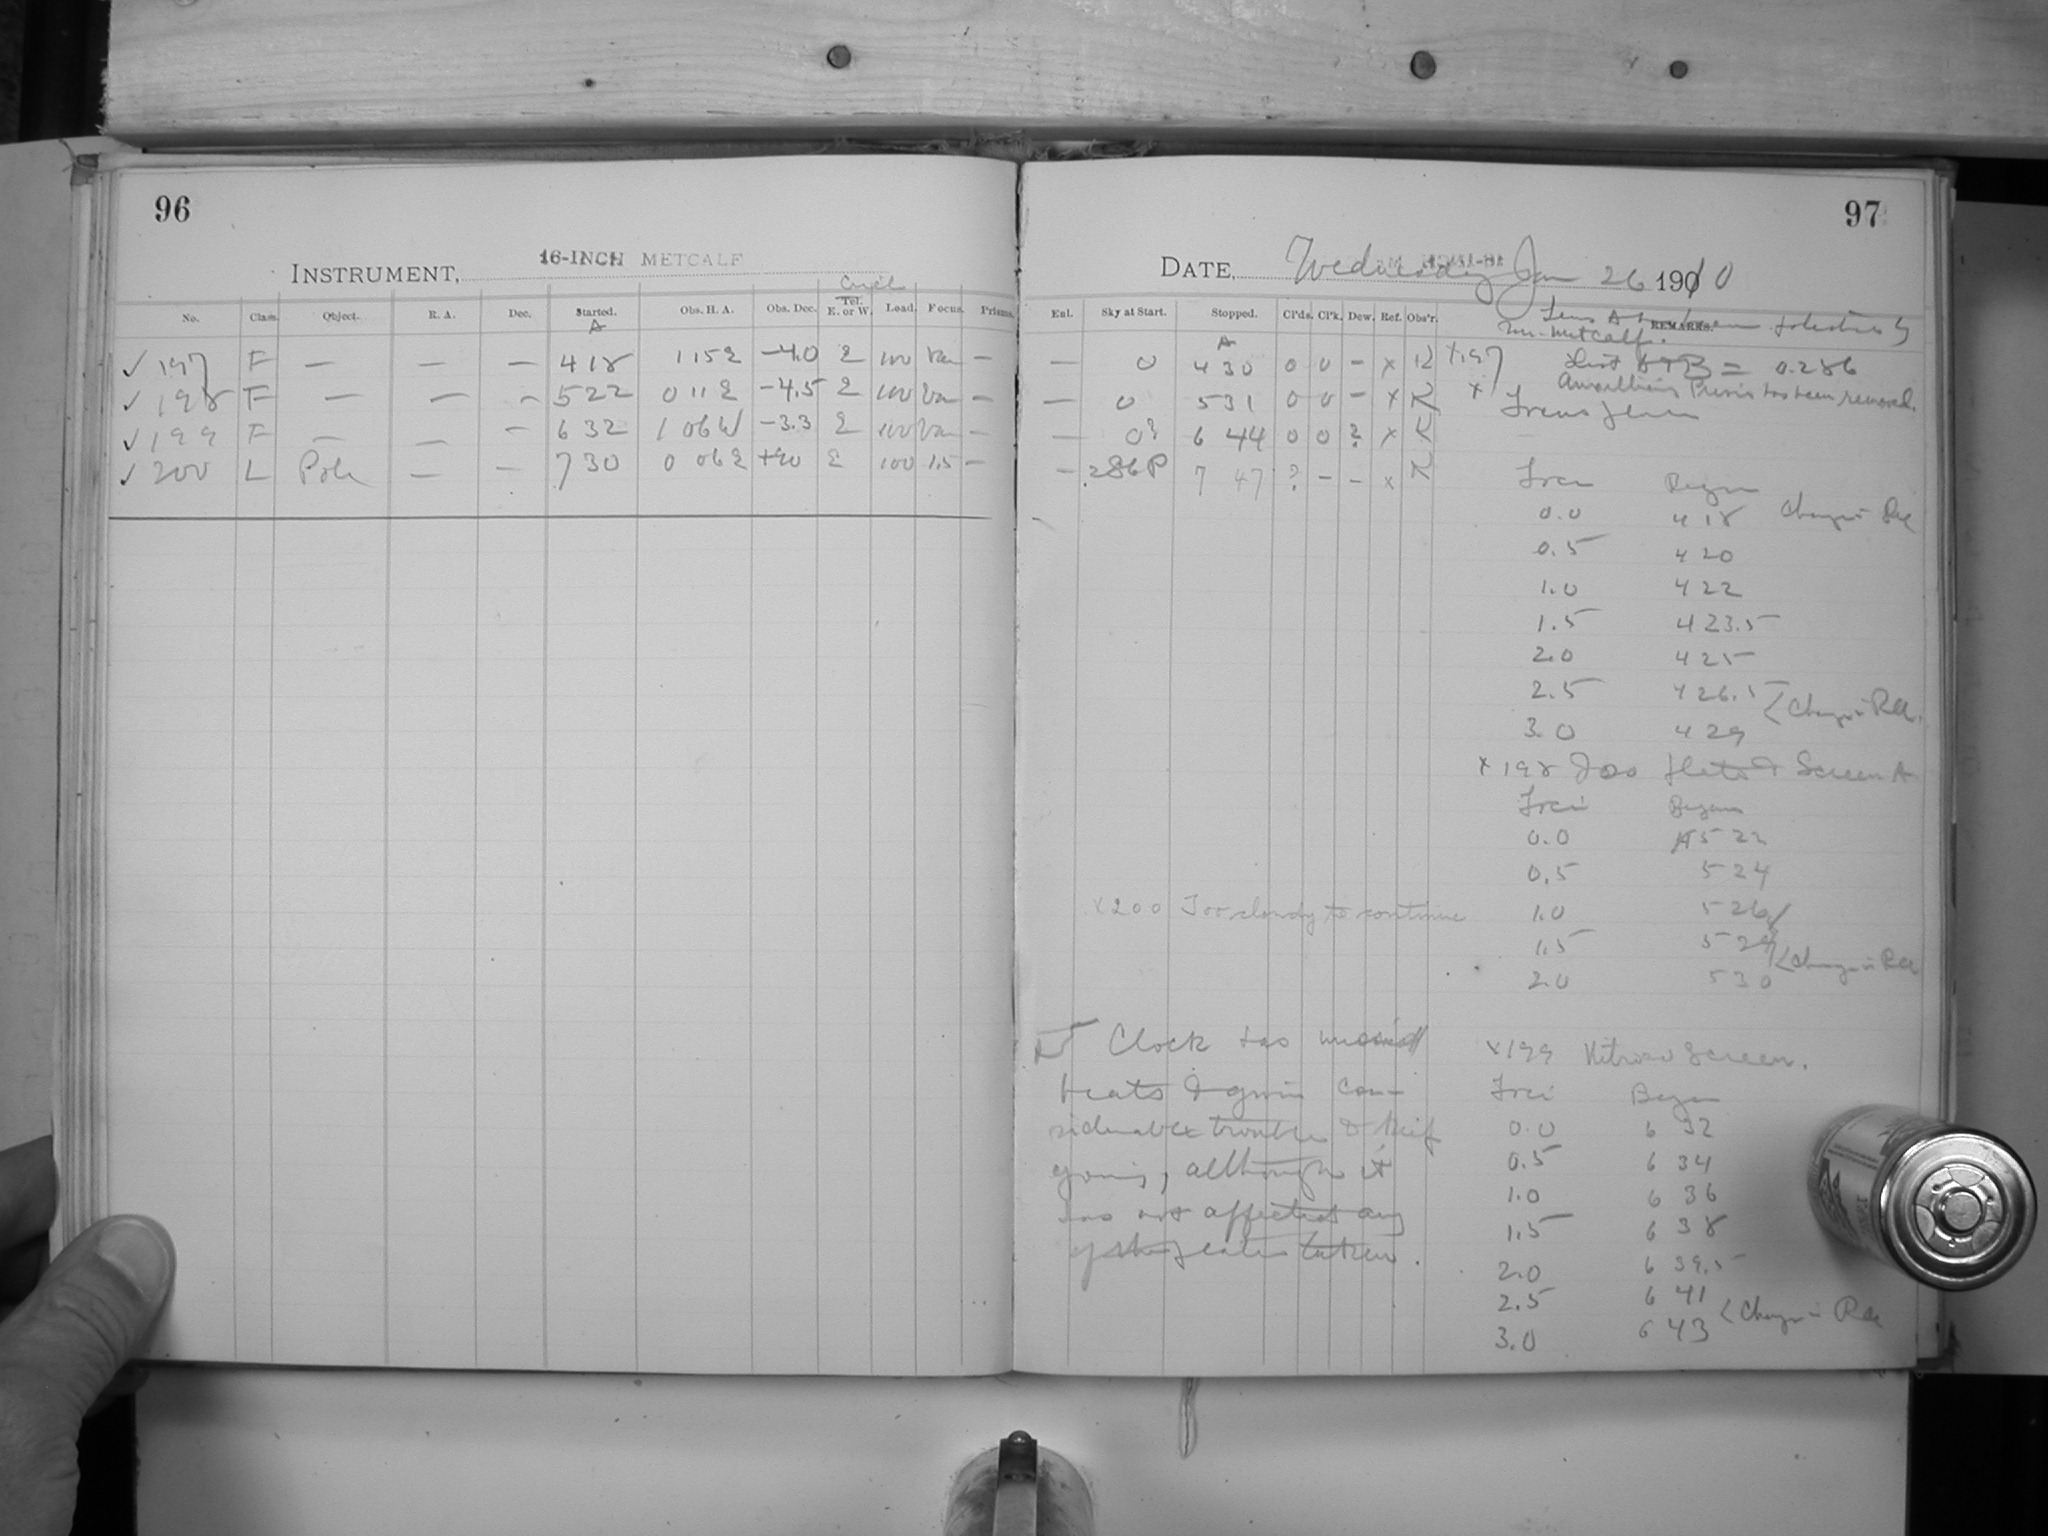 96
16-INCH METCALF
INSTRUMENT,
Circle
No. Class. Object. R. A. Dec. Started. Obs. H. A. Obs. Dec. Tel. E. or W. Load. Focus. Prisms.
A
✓ 197 F — — — 4 18 1 15 E −4.0 E 100 Var —
✓ 198 F — — — 5 22 0 11 E −4.5 E 100 Var —
✓ 199 F — — — 6 32 1 06 W −3.3 E 100 Var —
✓ 200 L Pole — — 7 30 0 06 E +90 E 100 1.5 —
97
DATE, Wednesday Jan 26 1910
Enl. Sky at Start. Stopped. Cl'ds. Cl'k. Dew. Ref. Obs'r. REMARKS.
Lens A has been
Mr. Metcalf.
A
— 0 4 30 0 0 — x K x 197
Dist A & B = 0.286
— 0 5 31 0 0 — x K x
Prism has been removed.
— 0? 6 44 0 0 ? x K
— .286P 7 47 ? — — x K
Foci Began
0.0 4 18 Change in Rdg
0.5 4 20
1.0 4 22
1.5 4 23.5
2.0 4 25
2.5 4 26.5
< Change in Rdg.
3.0 4 29
x 198 Iso plate & Screen A
Foci Began
0.0 A 5 22
0.5 5 24
1.0 5 26
1.5 5 29
< Change in Rdg
2.0 5 30
x 200 Too cloudy to continue
Clock has missed
beats & given con-
siderable trouble to keep
going, although it
has not affected any
of the plates taken.
x 199 Nitroso Screen.
Foci Began
0.0 6 32
0.5 6 34
1.0 6 36
1.5 6 38
2.0 6 39.5
2.5 6 41
< Change in Rdg
3.0 6 43